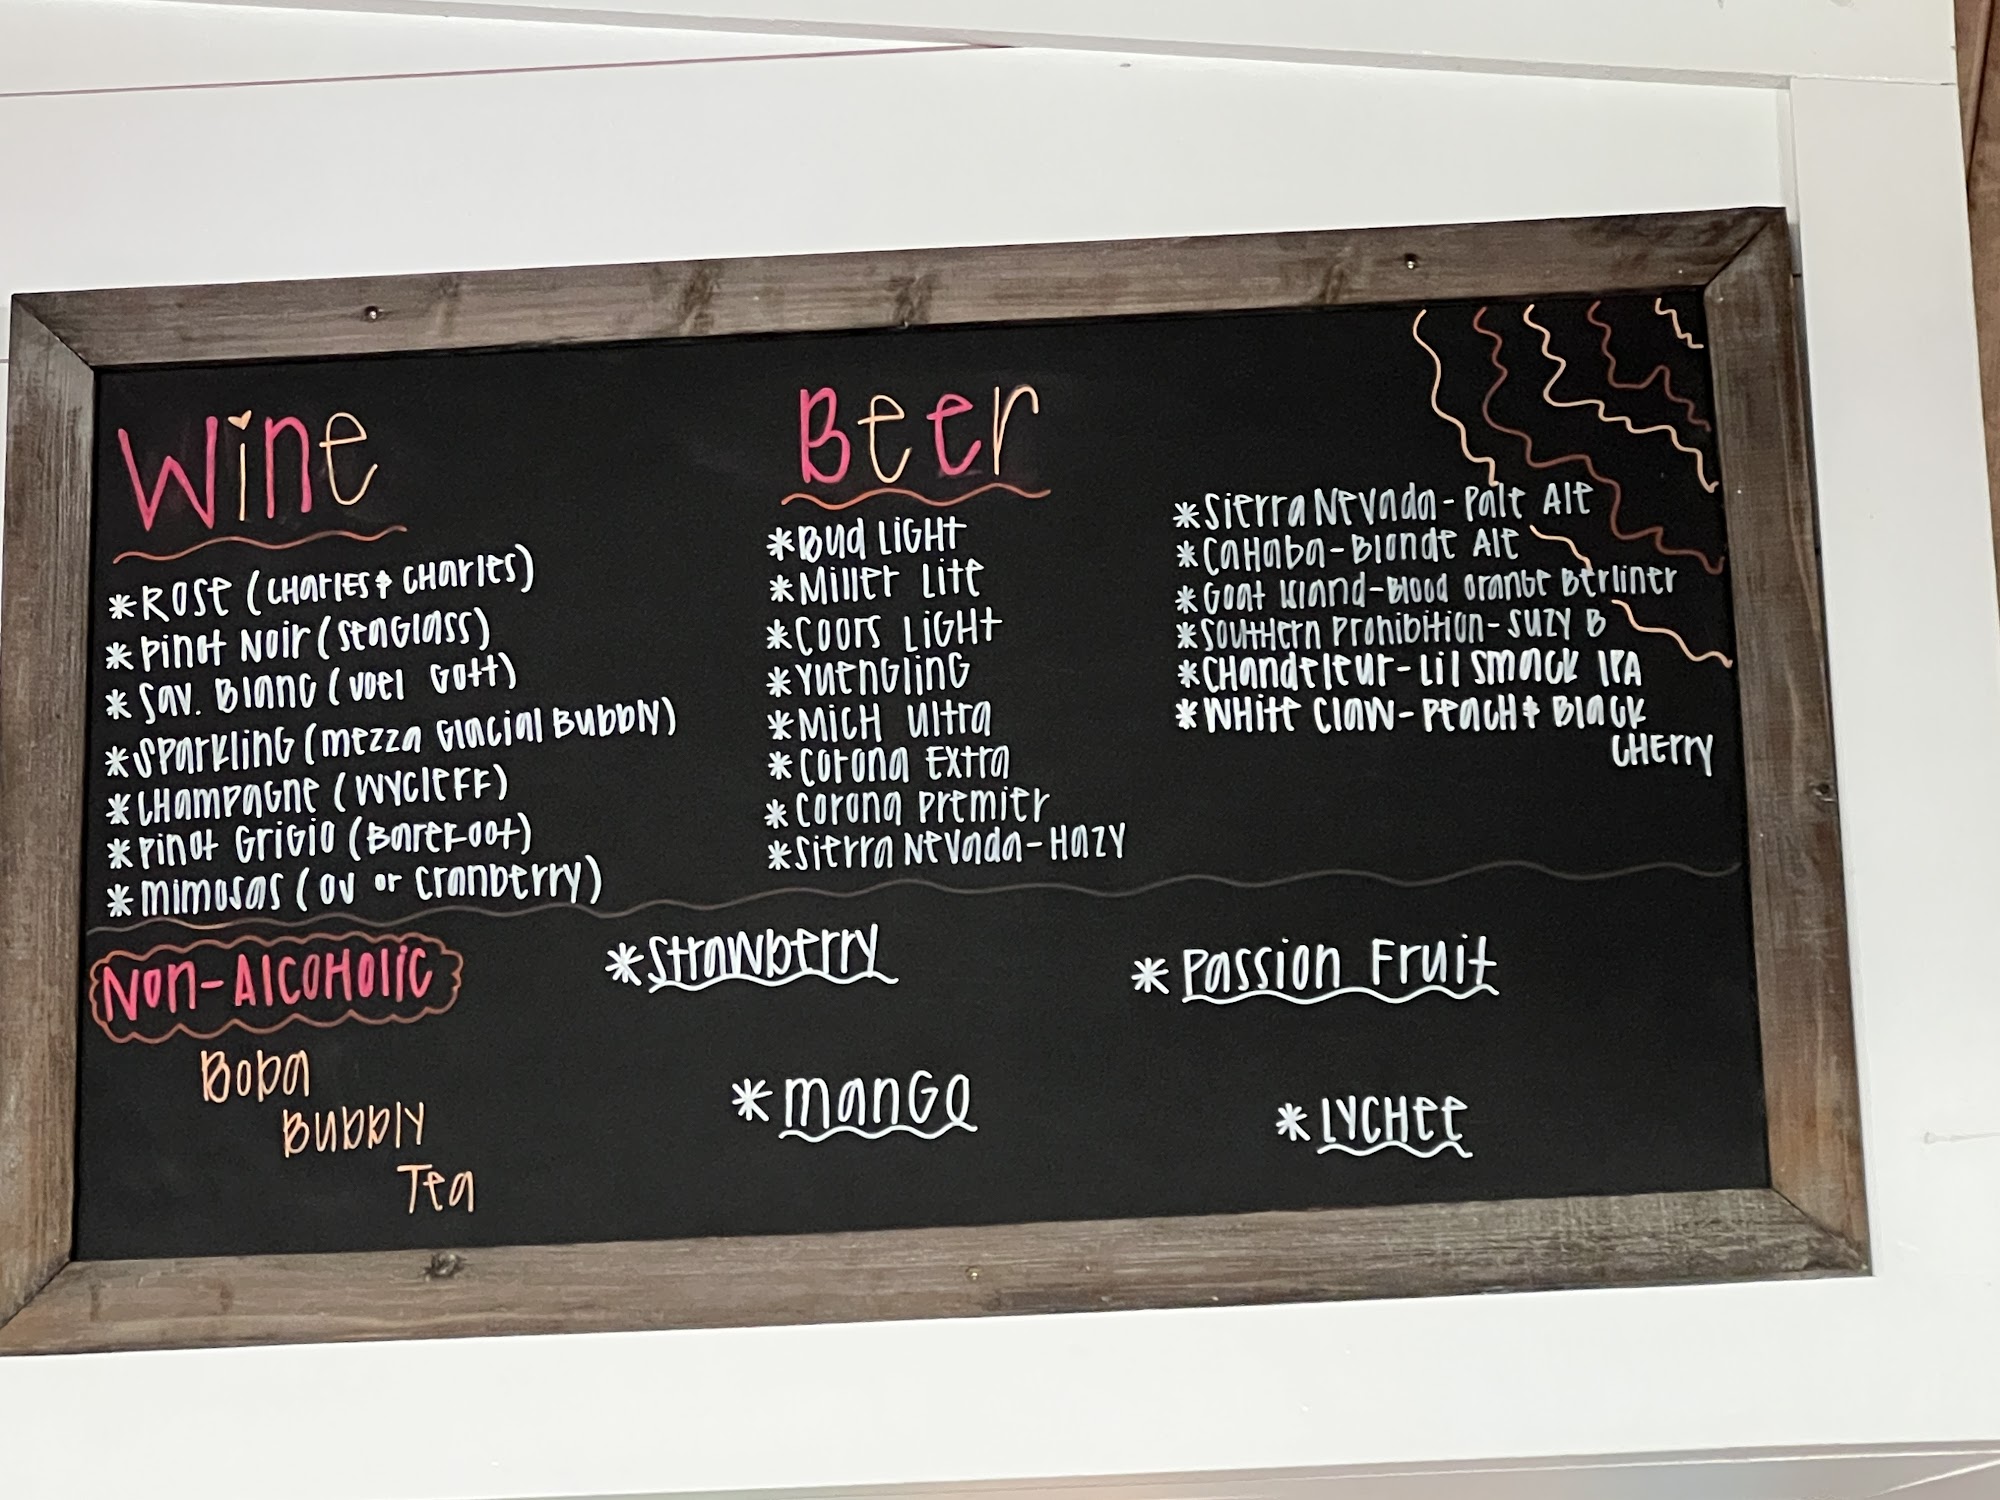 Wine
*Rose (Charles & Charles)
*Pinot Noir (Seaglass)
*Sav. Blanc (Joel Gott)
*Sparkling (Mezza Glacial Bubbly)
*Champagne (Wycleff)
*Pinot Grigio (Barefoot)
*Mimosas (OJ or Cranberry)
Beer
*Bud Light
*Miller Lite
*Coors Light
*Yuengling
*Mich Ultra
*Corona Extra
*Corona Premier
*Sierra Nevada-Hazy
*Sierra Nevada-Pale Ale
*Cahaba-Blonde Ale
*Goat Island-Blood Orange Berliner
*Southern Prohibition-Suzy B
*Chandeleur-Lil Smack IPA
*White Claw-Peach & Black
Cherry
Non-Alcoholic
Boba
Bubbly
Tea
*Strawberry
*Passion Fruit
*Mango
*Lychee